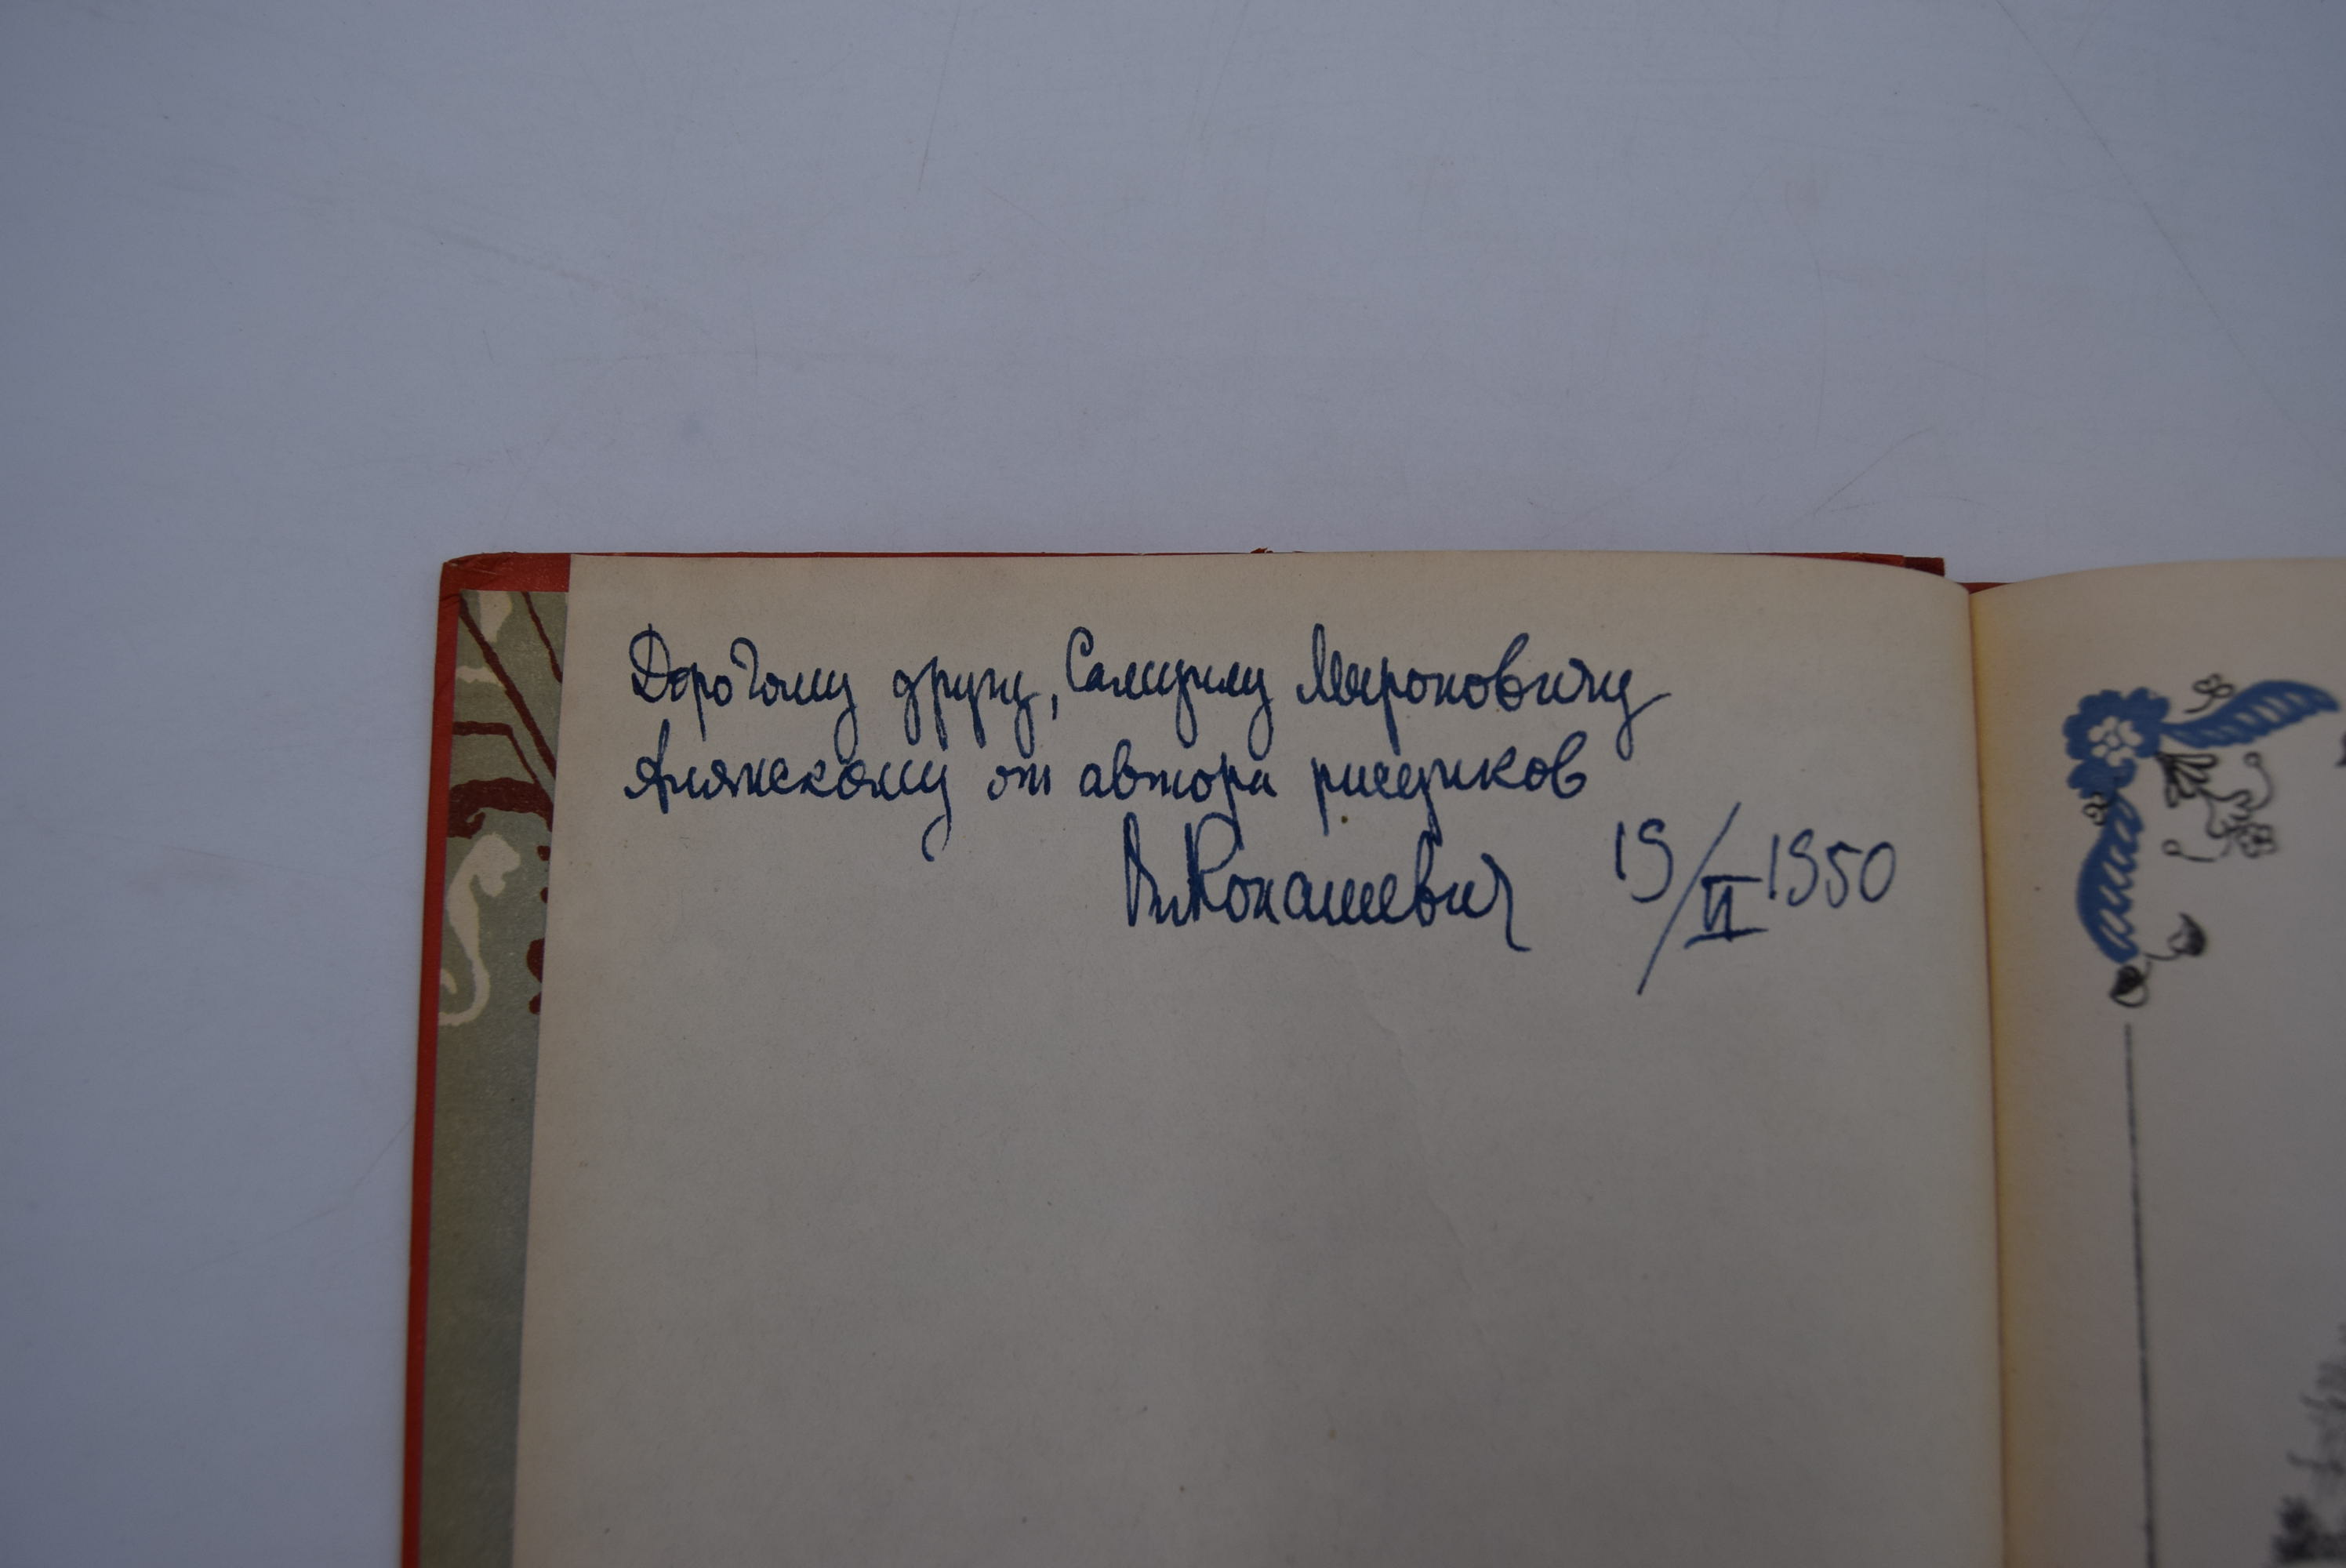 Дорогому другу, Самуилу Мироновичу
Алянскому от автора рисунков
Вл Конашевич 19/VI 1950